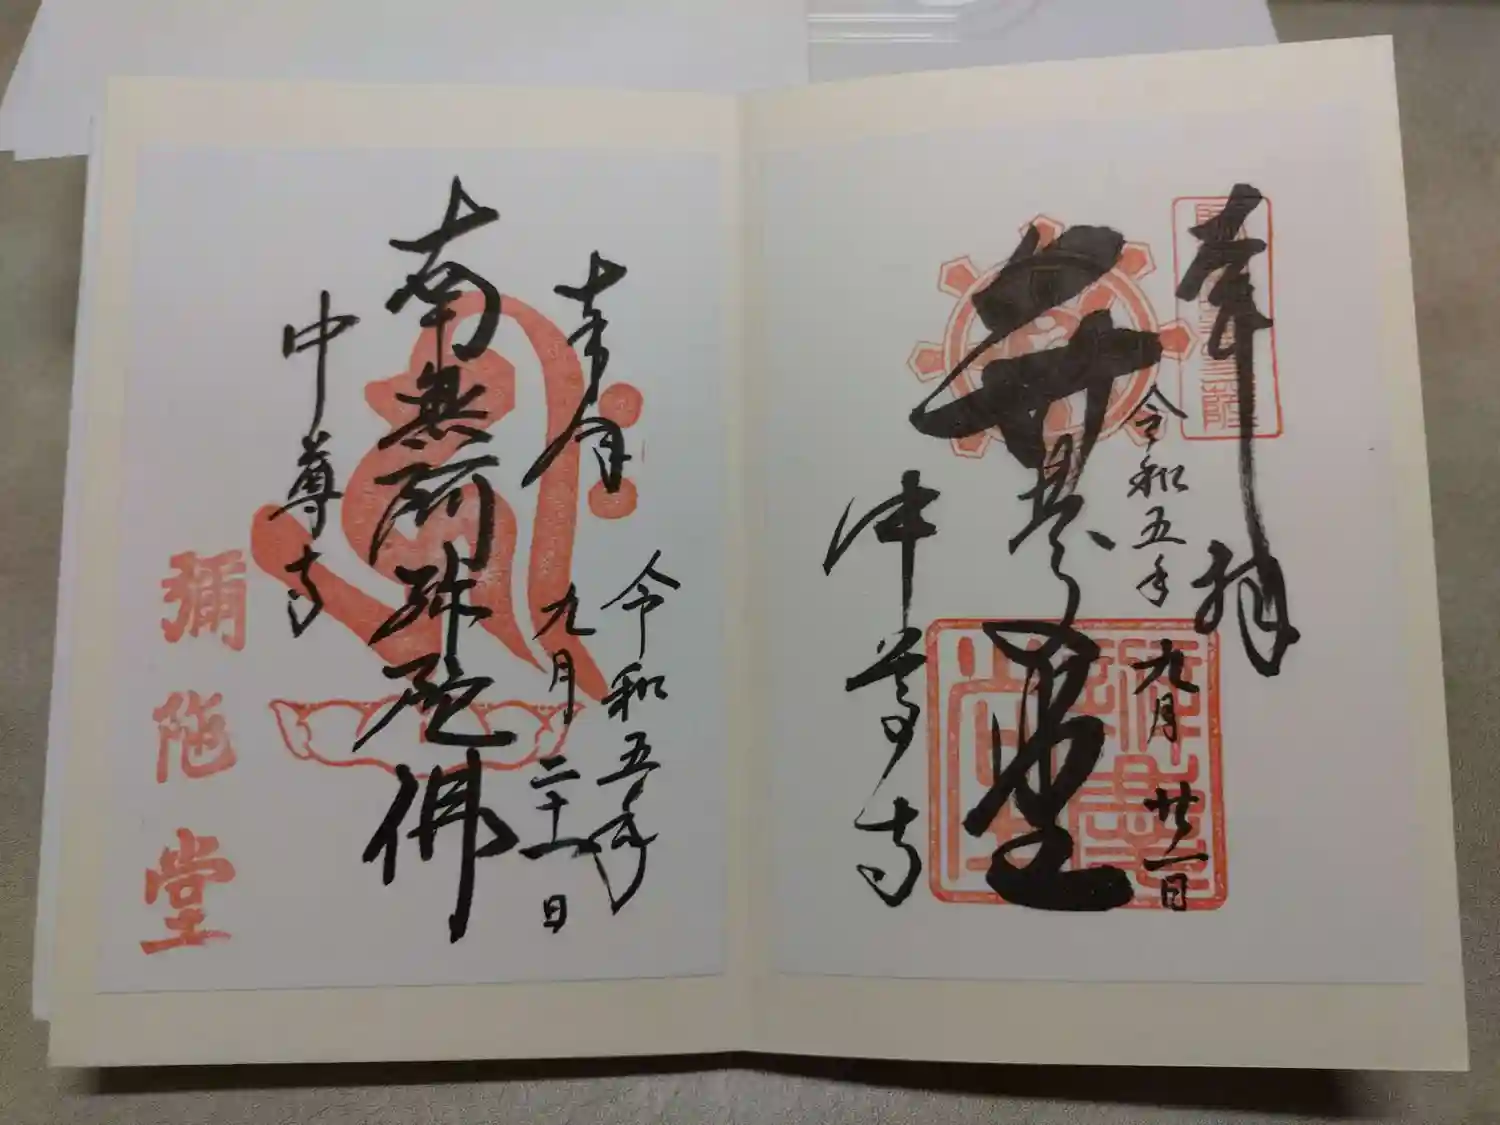 奉拝
令和五年九月廿一日
弁慶堂
中尊寺
奉
令和五年
九月二十一日
南無阿弥陀佛
中尊寺
彌陀堂